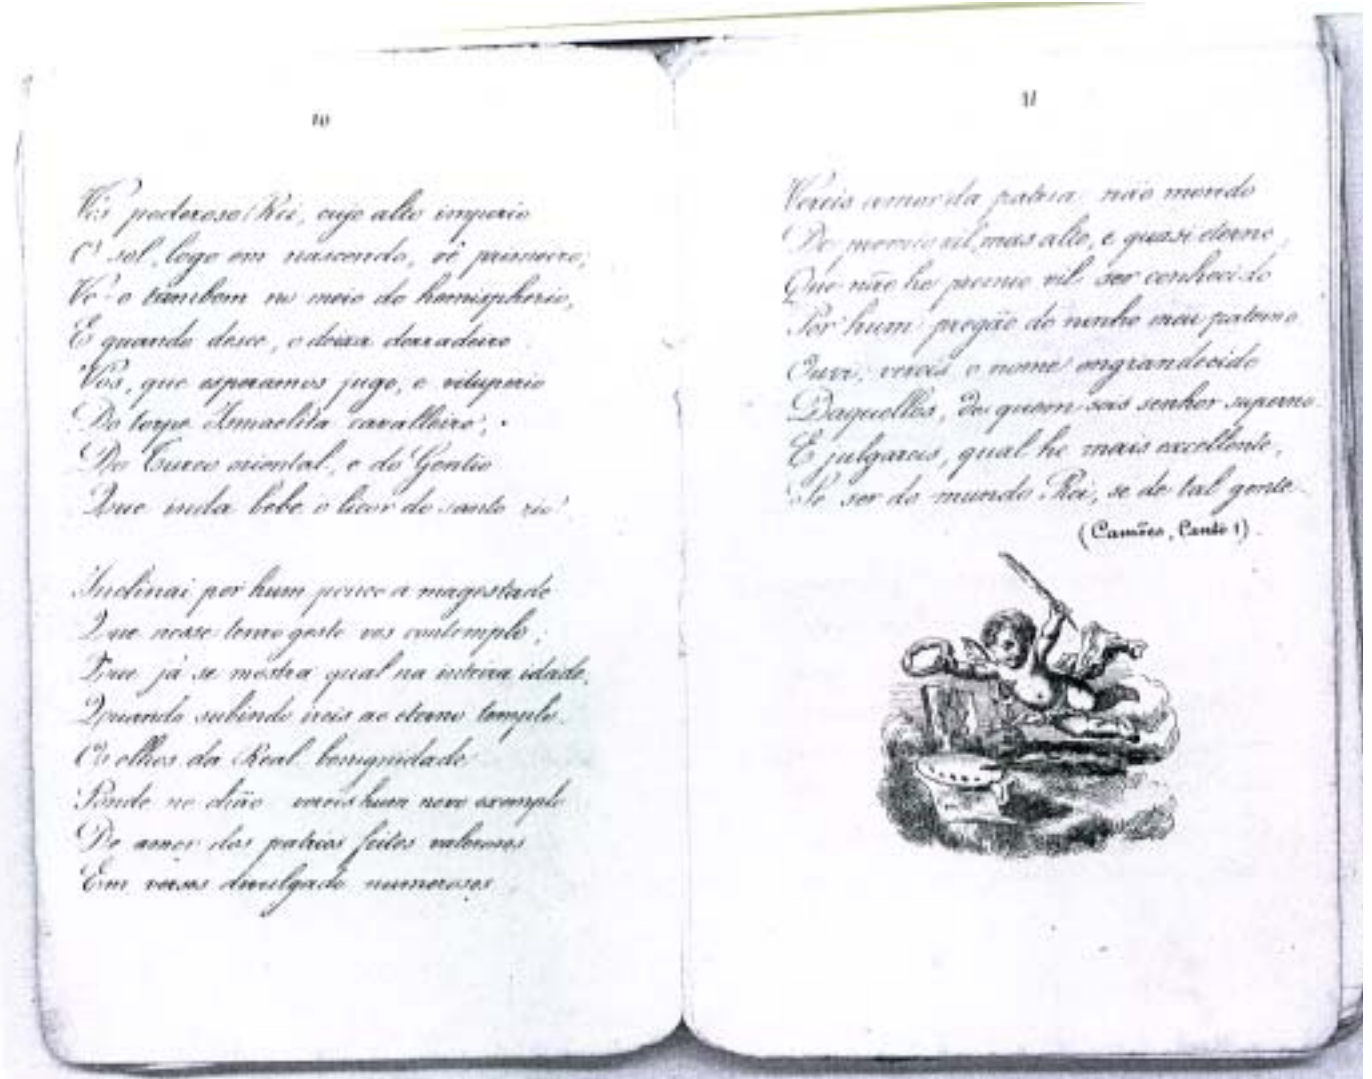 10
Vós poderoso Rei, cujo alto imperio
O sol, logo em nascendo, vê primeiro;
Vê-o tambem no meio do hemispherio,
E quando desce, o deixa derradeiro.
Vós, que esperamos jugo, e vituperio
Do torpe Ismaelita cavalleiro,
Do Turco oriental, e do Gentio
Que inda bebe o licor do santo rio!
Inclinai por hum pouco a magestade
Que nesse tenro gesto vos contemplo;
Que já se mostra qual na inteira idade,
Quando subindo ireis ao eterno templo.
Os olhos da Real benignidade
Ponde no chão: vereis hum novo exemplo
De amor dos patrios feitos valerosos
Em versos divulgado numerosos.
11
Vereis amor da patria, não movido
De premio vil, mas alto, e quasi eterno;
Que não he premio vil ser conhecido
Por hum pregão do ninho meu paterno.
Ouvi, vereis o nome engrandecido
Daquelles, de quem sois senhor superno.
E julgareis, qual he mais excellente,
Se ser do mundo Rei, se de tal gente.
(Camões, Canto 1).